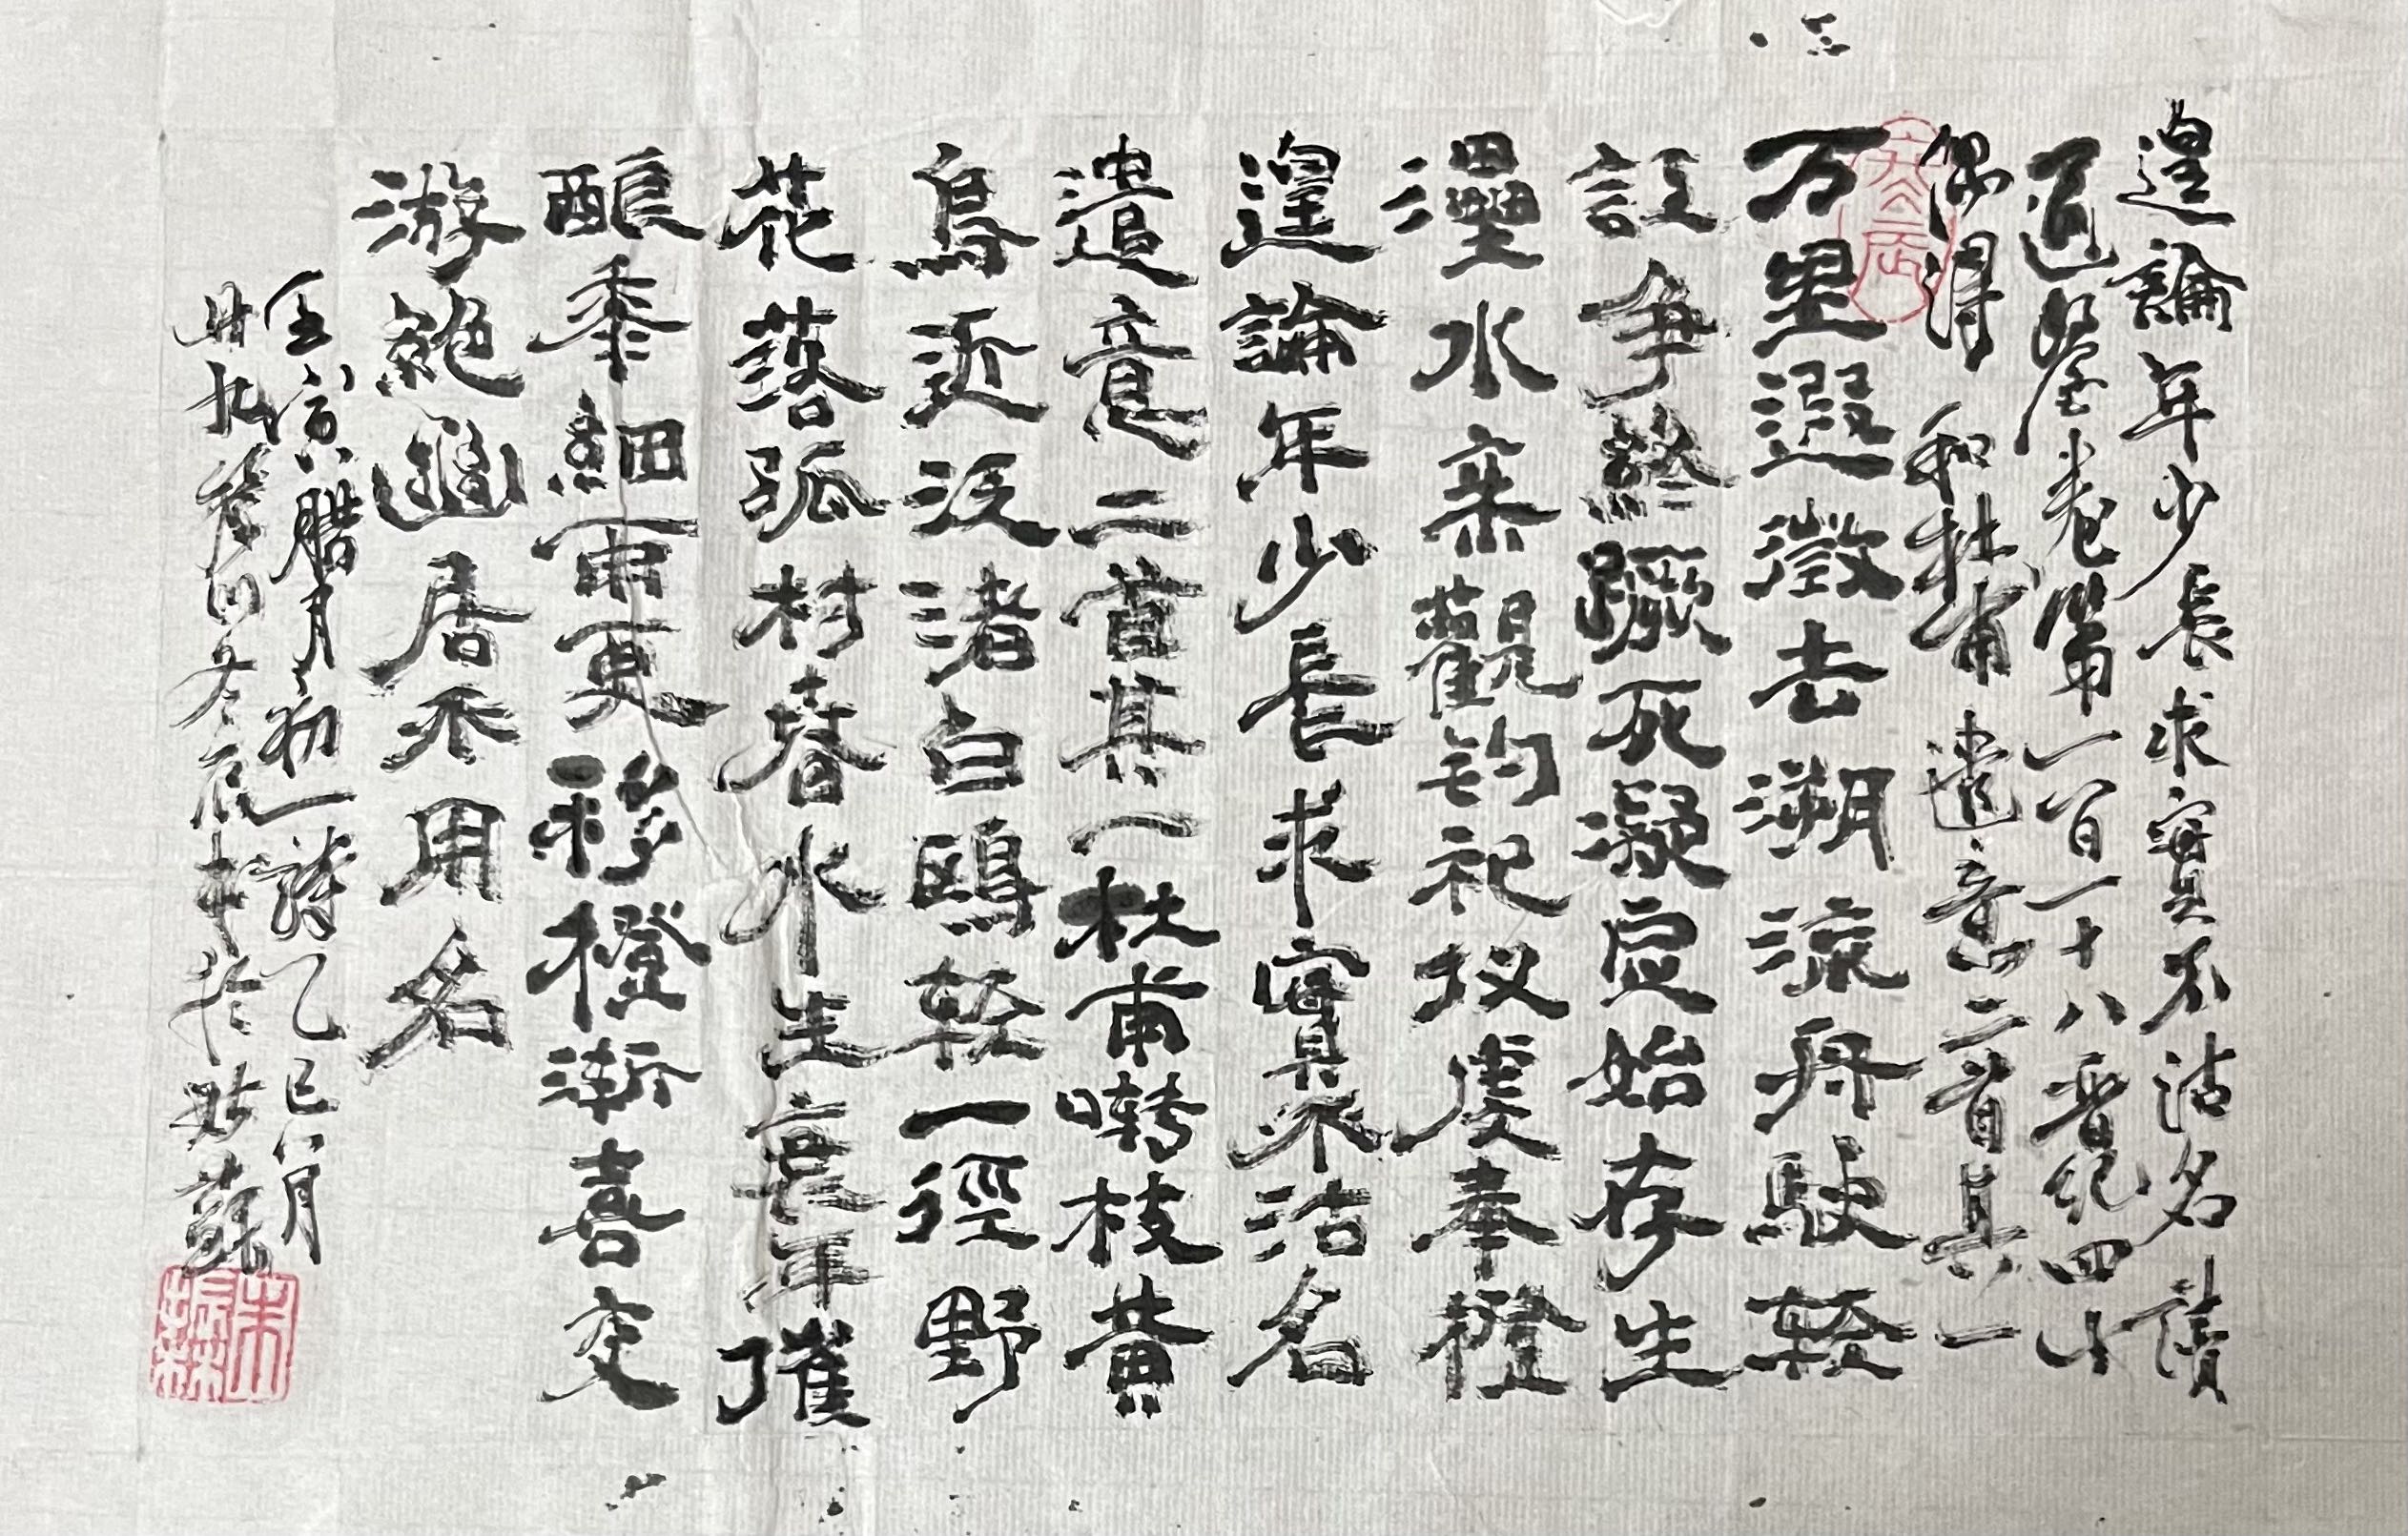 遑論年少長求實不沽名讀
通鑒卷第一百一十八晉紀四十
偶得 和杜甫 遣意二首其一
万里遐澂去溯流舟駛輕
註爭終蹶死凝虛始存生
灅水來觀鈞祀奴虔奉橙
遑論年少長求實不沽名
遣意二首其一杜甫囀枝黃
鳥近泛渚白鷗輕一徑野
花落孤村春水生衰年催
釀黍細雨更移橙漸喜交
游絶幽居不用名
壬寅臘月初一詩乙巳八月
廿九